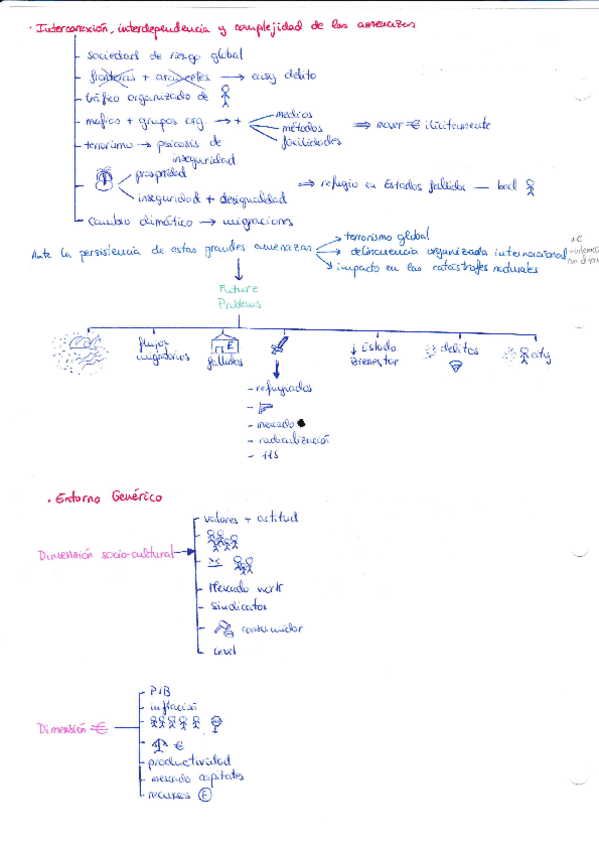 · Interconexión, interdependencia y complejidad de las amenazas
- sociedad de riesgo global
- fronteras + aranceles → easy delito
- tráfico organizado de
- mafias + grupos org. → +
medios
métodos
facilidades
⇒ mover € ilícitamente
- terrorismo → psicosis de
inseguridad
prosperidad
inseguridad + desigualdad
⇒ refugio en Estados fallidos — bad
- cambio climático → migraciones
Ante la persistencia de estas grandes amenazas
terrorismo global
delincuencia organizada internacional
impacto en las catástrofes naturales
Future
Problems
flujos
migratorios
E
fallidos
↓ Estado
Bienestar
delitos
- refugiados
-
- mercado
- radicalización
· Entorno Genérico
Dimensión socio-cultural
valores + actitud
- Mercado work
- Sindicatos
- consumidor
- Level
Dimensión €
- PIB
- inflación
- €
- productividad
- mercado capitales
- recursos E